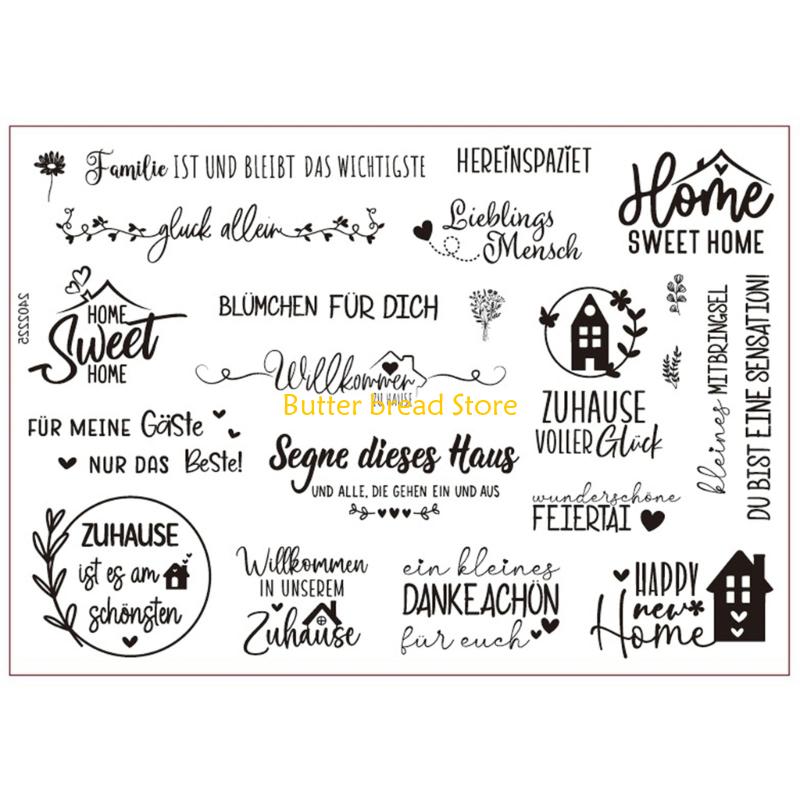 Familie IST UND BLEIBT DAS WICHTIGSTE
HEREINSPAZIET
Home
SWEET HOME
gluck allein
Lieblings
Mensch
2402225
HOME
Sweet
HOME
BLÜMCHEN FÜR DICH
Willkommen
ZU HAUSE
Butter Bread Store
ZUHAUSE
VOLLER Glück
kleines MITBRINGSEL
DU BIST EINE SENSATION!
FÜR MEINE Gäste
NUR DAS Beste!
Segne dieses Haus
UND ALLE, DIE GEHEN EIN UND AUS
wunderschöne
FEIERTAI
ZUHAUSE
ist es am
schönsten
Willkommen
IN UNSEREM
Zuhause
ein kleines
DANKEACHÖN
für euch
HAPPY
new
Home